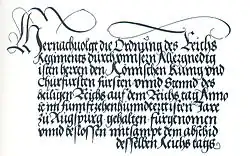 Hernachvolgt die Ordnung des Reichs
Regiments durch unsern Allergnedig
isten herren den Römischen Künig und
Churfürsten fürsten unnd Stennd des
heiligen Reichs auf dem Reichs tag Anno
im funnfzehenhundertisten Jare
zu Augspurg gehalten fürgenomen
unnd beslossen mitsampt dem abschid
desselben Reichs tags